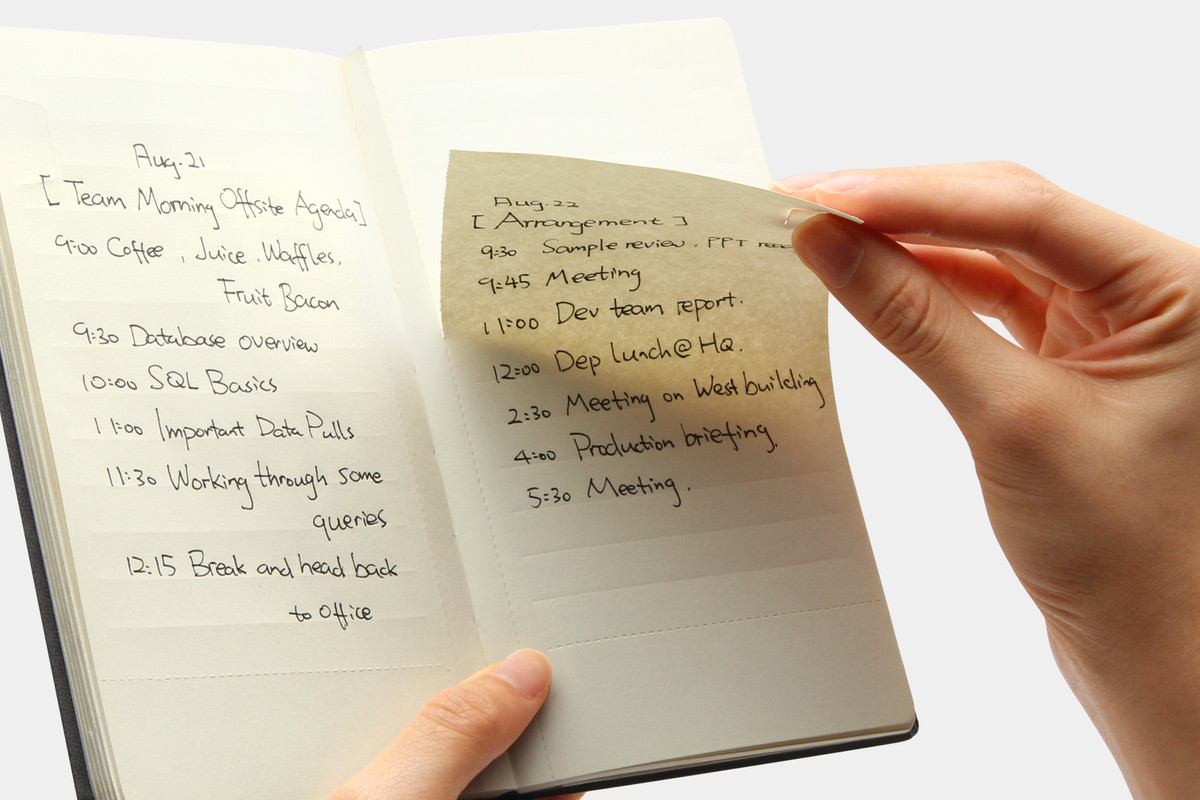 Aug.21
[Team Morning Offsite Agenda]
9:00 Coffee, Juice.Waffles,
Fruit Bacon
9:30 Database overview
10:00 SQL Basics
11:00 Important Data Pulls
11:30 Working through some
queries
12:15 Break and head back
to office
Aug.22
[Arrangement]
9:30 Sample review. PPT
9:45 Meeting
11:00 Dev team report.
12:00 Dep lunch@HQ.
2:30 Meeting on West building
4:00 Production briefing.
5:30 Meeting.